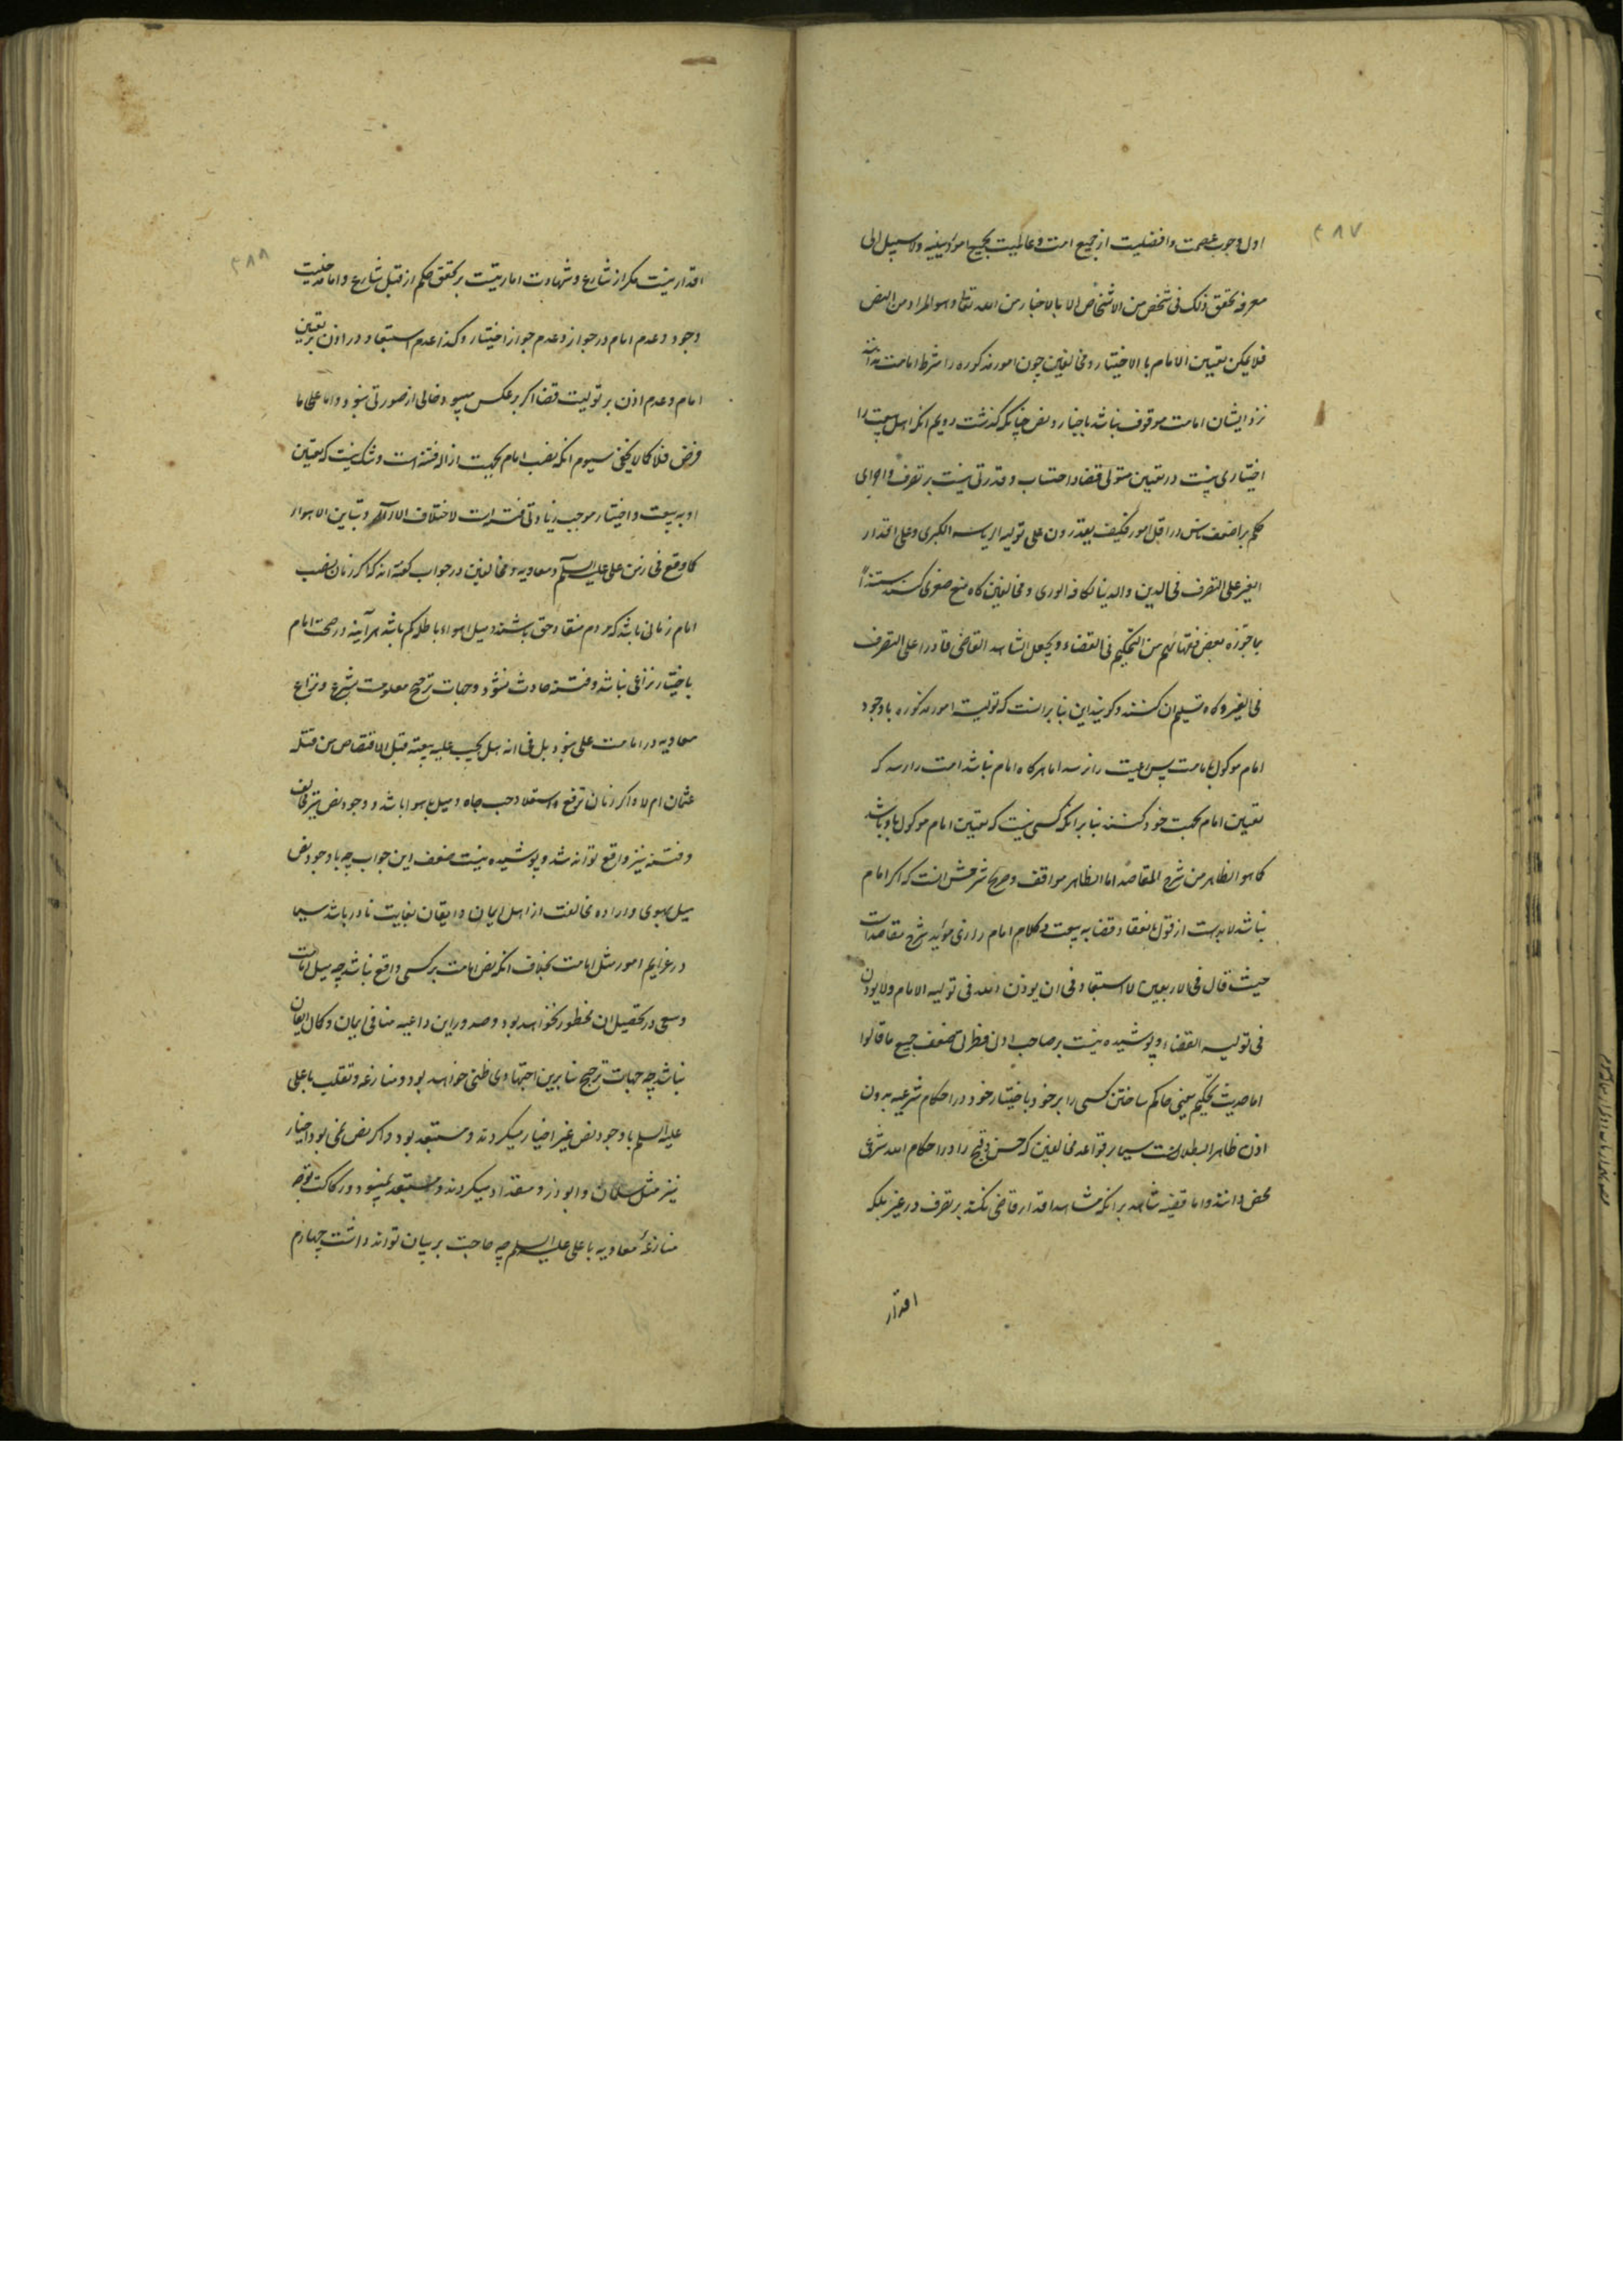 ۳۸۷
اول وجوب عصمت وافضلیت از جمیع امت وعالمیت بجمیع امور دینیه ولا سبیل الی
معرفة تحقق ذلک فی شخص من الاشخاص الا بالاخبار من الله تعالی وهو المراد من النص
فلا یمکن تعیین الامام بالاختیار ومخالفین چون امور مذکوره را شرط امامت ندانند
نزد ایشان امامت موقوف نباشد باخبار ونص چنانکه گذشت دویم انکه اهل بیعت را
اختیاری نیست در تعیین متولی قضا واحتساب وقدرتی نیست بر تصرف واجرای
حکم بر اضعف ناس در اقل امور فکیف یقدرون علی تولیه الریاسه الکبری وعلی اقدار
الغیر علی التصرف فی الدین والدنیا لکافه الوری ومخالفین گاه منع صغری کنند مستندا
بما جوزه بعض فقهائهم من التحکیم فی القضاء وبجعل الشاهد القاضی قادرا علی التصرف
فی الغیر وگاه تسلیم ان کنند وگویند این بنابر انست که تولیت امور مذکوره با وجود
امام موکول بامامت پس رعیت را نرسد اما هرگاه امام نباشد امت را رسد که
تعیین امام بجهت خود کنند بنابر انکه کسی نیست که تعیین امام موکول باو باشد
کما هو الظاهر من شرح المقاصد اما الظاهر مواقف وصریح شرحش انست که اگر امام
نباشد لابد است از قول بانعقاد قضا به بیعت وکلام امام رازی مؤید شرح مقاصد است
حیث قال فی الاربعین لا استبعاد فی ان یوذن الله فی تولیه الامام ولا یوذن
فی تولیه القضاء وپوشیده نیست بر صاحب ادنی فطرت ضعف جمیع ما قالوا
اما حدیث تحکیم یعنی حاکم ساختن کسی را بر خود باختیار خود در احکام شرعیه بدون
اذن ظاهر البطلانست سیما بر قواعد مخالفین که حسن وقبح را در احکام الله شرعی
محض دانند واما قضیه شاهد برانکه مشاهد اقدار قاضی نکند بر تصرف در غیر بلکه
اقدار
۳۸۸
اقدار نیست مگر از شارع وشهادت امارتیست بر تحقق حکم از قبل شارع واما مدخلیت
وجود وعدم امام در جواز وعدم جواز اختیار وکذا عدم استبعاد در اذن بر تعیین
امام وعدم اذن بر تولیت قضا اگر بر عکس میبود خالی از صورتی نبود واما علی ما
فرض فلا کما لا یخفی سیوم انکه نصب امام بجهت ازاله فتنه است وشک نیست که تعیین
او به بیعت واختیار موجب زیادتی فتنه است لاختلاف الآراء وتباین الاهواء
کما وقع فی زمن علی علیه السلم ومعاویه ومخالفین در جواب گفته اند که اگر زمان نصب
امام زمانی باشد که مردم منقاد حق باشند ومیل اهواء باطله کم باشد هرآینه در صحت امام
باختیار نزاعی نباشد وفتنه حادث نشود وجهات ترجیح معلومست بشرع ونزاع
معاویه در امامت علی نبود بل فی انه هل یجب علیه بیعته قبل الاقتصاص من قتله
عثمان ام لا واگر زمان ترفع واستعلا وحب جاه ومیل بهوا باشد وجود نص نیز مخالف
وفتنه نیز واقع تواند شد وپوشیده نیست ضعف این جواب چه با وجود نص
میل بهوی واراده مخالفت از اهل ایمان وایقان بغایت نادر باشد سیما
در عزایم امور مثل امامت بخلاف انکه نص امامت بر کسی واقع نباشد چه میل امامت
وسعی در تحصیل ان محظور نخواهد بود وصدور این داعیه منافی ایمان وکمال ایقان
نباشد چه جهات ترجیح بنابرین اجتهادی ظنی خواهد بود ومنازعه وتغلب با علی
علیه السلم با وجود نص غیر اخیار میکردند ومستبعد بود واگر نص نمی بود اخیار
نیز مثل سلمان وابوذر ومقداد میکردند ومستبعد نمیبود ورکاکت توجیه
منازعهٔ معاویه با علی علیه السلم چه حاجت بر بیان تواند داشت چهارم